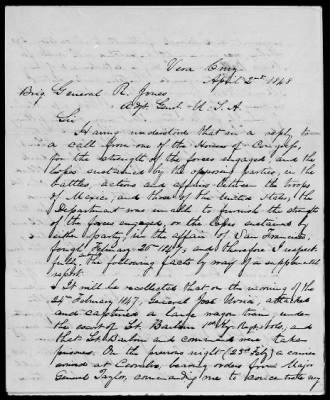 Vera Cruz
April 2nd 1848
Brig General R. Jones
Adjt Genl. U. S. A
Sir
Having understood that in a reply to
a call from one of the Houses of Congress,
for the strength of the forces engaged, and the
loss sustained by the opposing parties, in the
battles, actions and affairs between the troops
of Mexico, and those of the United States, the
Department was unable to furnish the strength
of the forces engaged, or the loss sustained by
either party, in the affair of San Francisco,
fought February 25th 1847, and therefore I respect
fully, the following facts by way of a supplemental
report.
It will be recollected that on the morning of the
24th February 1847, General José Urrea, attacked
and captured a large wagon train, under
the escort of Lt. Barbour 1st Ky. Regt.
that Lt. Barbour and command were taken
prisoners. On the previous night (23rd Feby) a courier
arrived at Cerralvo, bearing orders from Major
General Taylor, commanding me to concentrate my